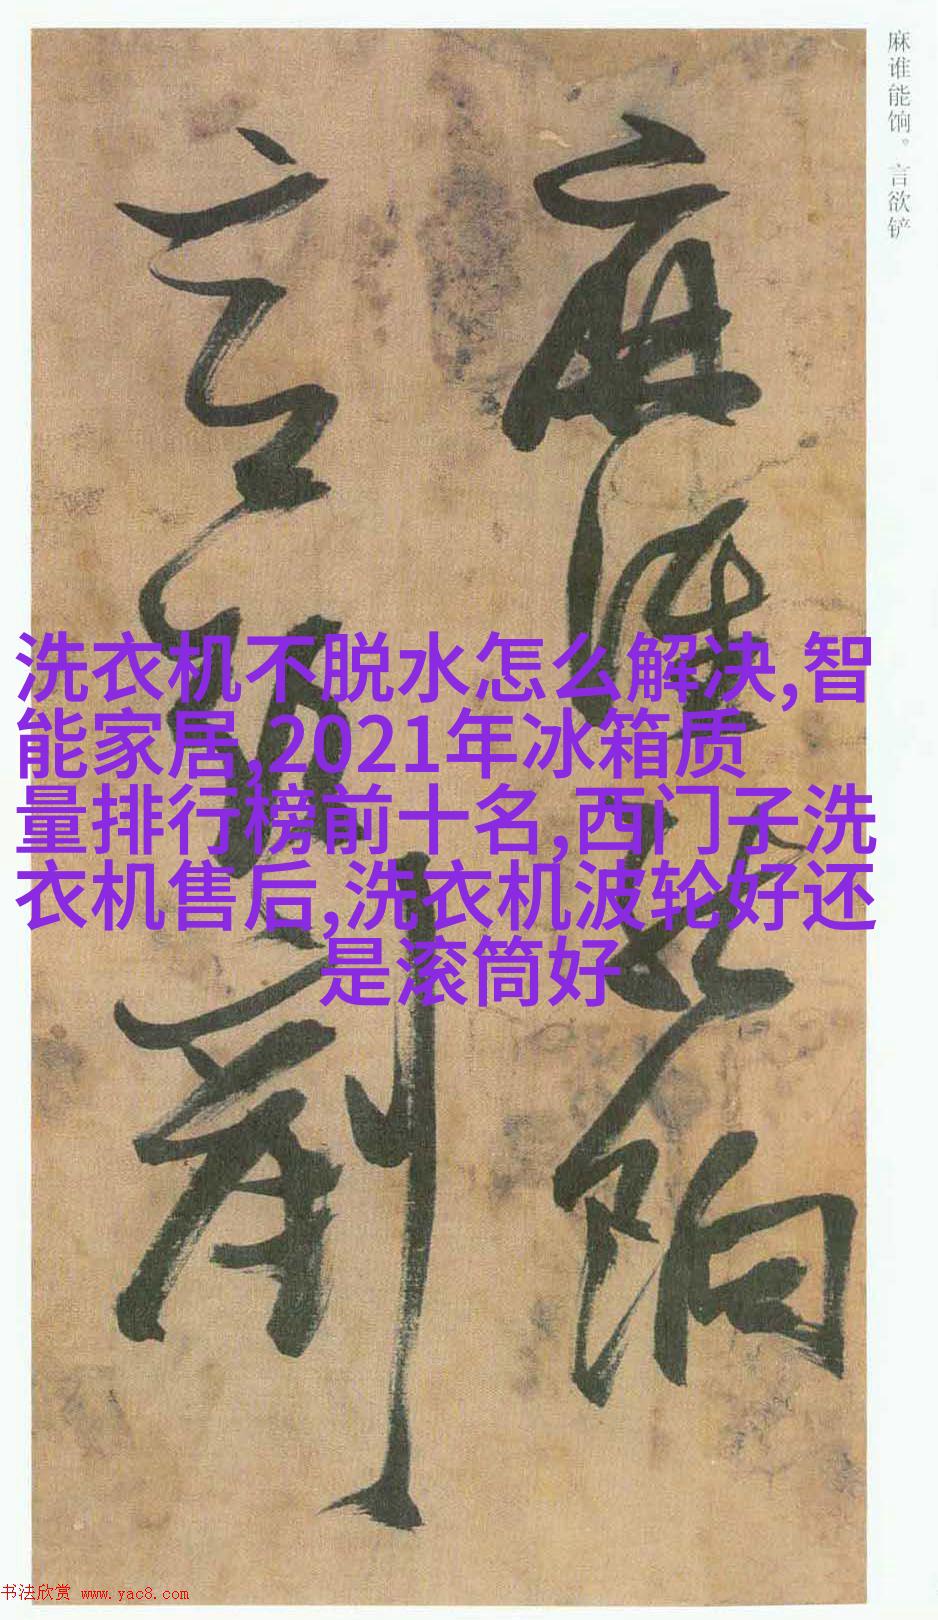 麻谁能饷。言欲铲
麻谁能饷
言欲刬
洗衣机不脱水怎么解决,智
能家居,2021年冰箱质
量排行榜前十名,西门子洗
衣机售后,洗衣机波轮好还
是滚筒好
书法欣赏 www.yac8.com